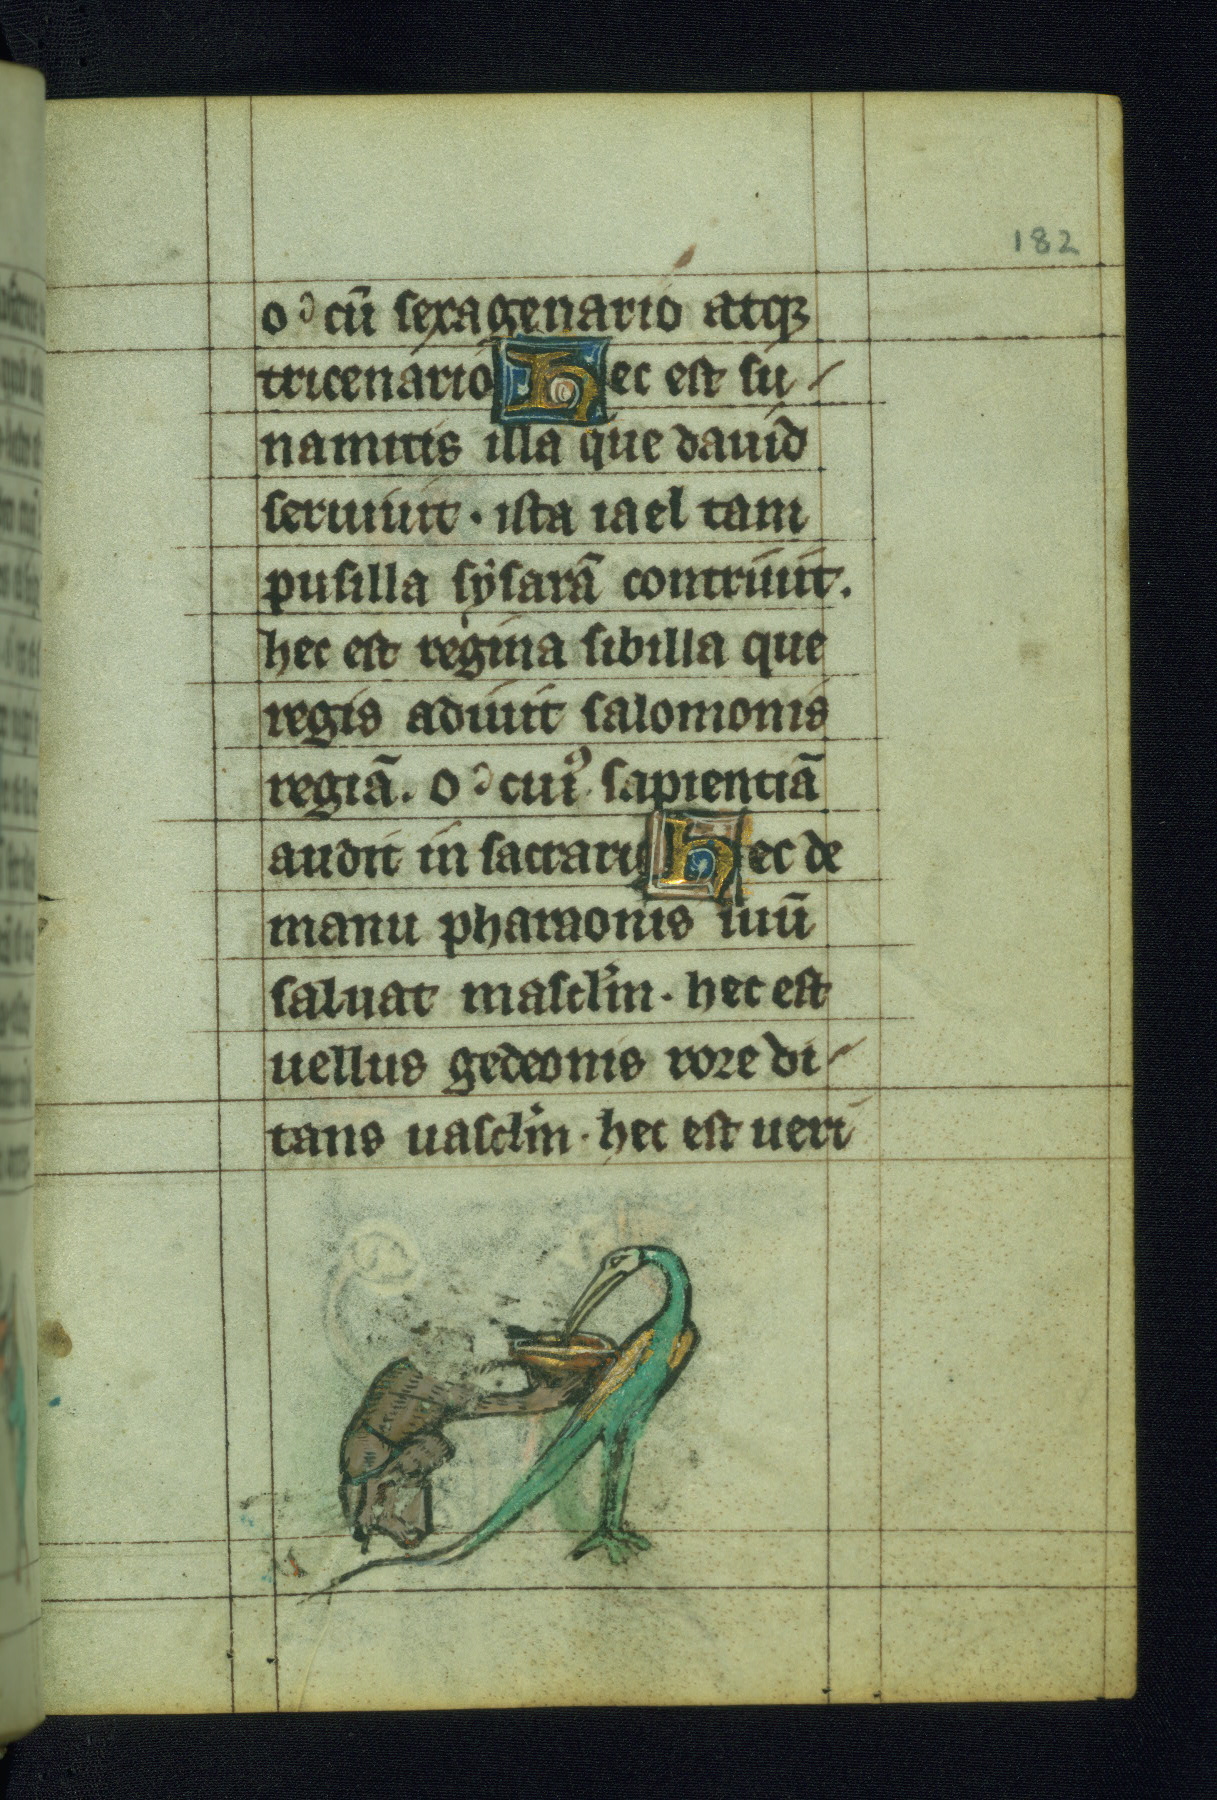 182
o ꝯ cū sexagenario atqꝫ
tricenario Hec est su
namitis illa que dauid
seruiuit · ista iael tam
pusilla sẏsarā contriuit.
hec est regina sibilla que
regis adiuit salomonis
regiā. o ꝯ cui᾽ sapientiā
audit in sacrario hec de
manu pharaonis iuū
saluat masclin · hec est
uellus gedeonis rore di
tans uasclin · hec est ueri